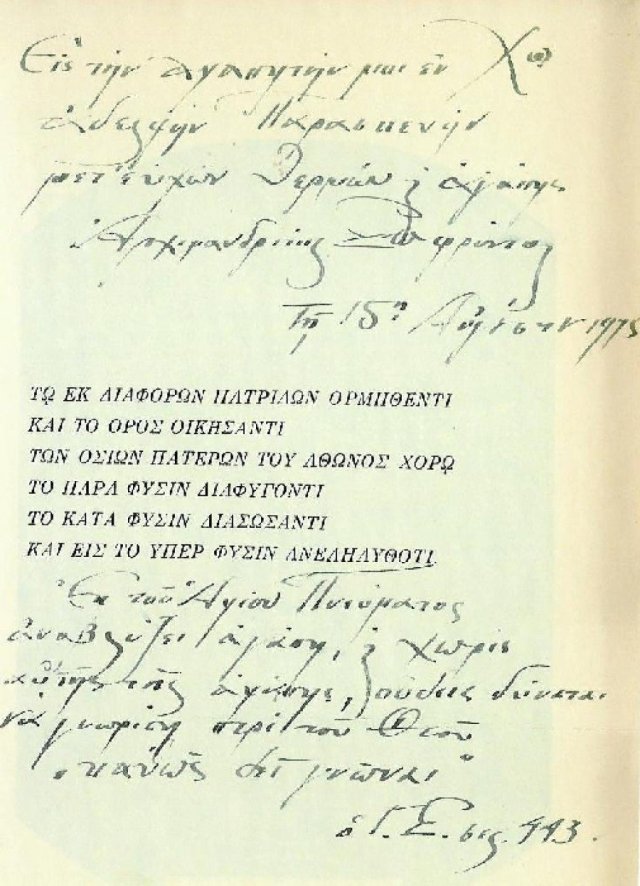 Εἰς τὴν ἀγαπητήν μοι ἐν Χῳ
ἀδελφὴν Παρασκευὴν
μετ' εὐχῶν θερμῶν ϗ ἀγάπης
Ἀρχιμανδρίτης Σωφρόνιος
Τῇ 15ῃ Αὐγούστου 1975
ΤΩ ΕΚ ΔΙΑΦΟΡΩΝ ΠΑΤΡΙΔΩΝ ΟΡΜΗΘΕΝΤΙ
ΚΑΙ ΤΟ ΟΡΟΣ ΟΙΚΗΣΑΝΤΙ
ΤΩΝ ΟΣΙΩΝ ΠΑΤΕΡΩΝ ΤΟΥ ΑΘΩΝΟΣ ΧΟΡΩ
ΤΟ ΠΑΡΑ ΦΥΣΙΝ ΔΙΑΦΥΓΟΝΤΙ
ΤΟ ΚΑΤΑ ΦΥΣΙΝ ΔΙΑΣΩΣΑΝΤΙ
ΚΑΙ ΕΙΣ ΤΟ ΥΠΕΡ ΦΥΣΙΝ ΑΝΕΛΗΛΥΘΟΤΙ
Ἐκ τοῦ Ἁγίου Πνεύματος
ἀναβλύζει ἀγάπη, ϗ χωρὶς
αὐτῆς τῆς ἀγάπης, οὐδεὶς δύναται
νὰ γνωρίσῃ περὶ τοῦ Θεοῦ
„καθὼς δεῖ γνῶναι"
ὁ Γ. Σ. σελ. 443.